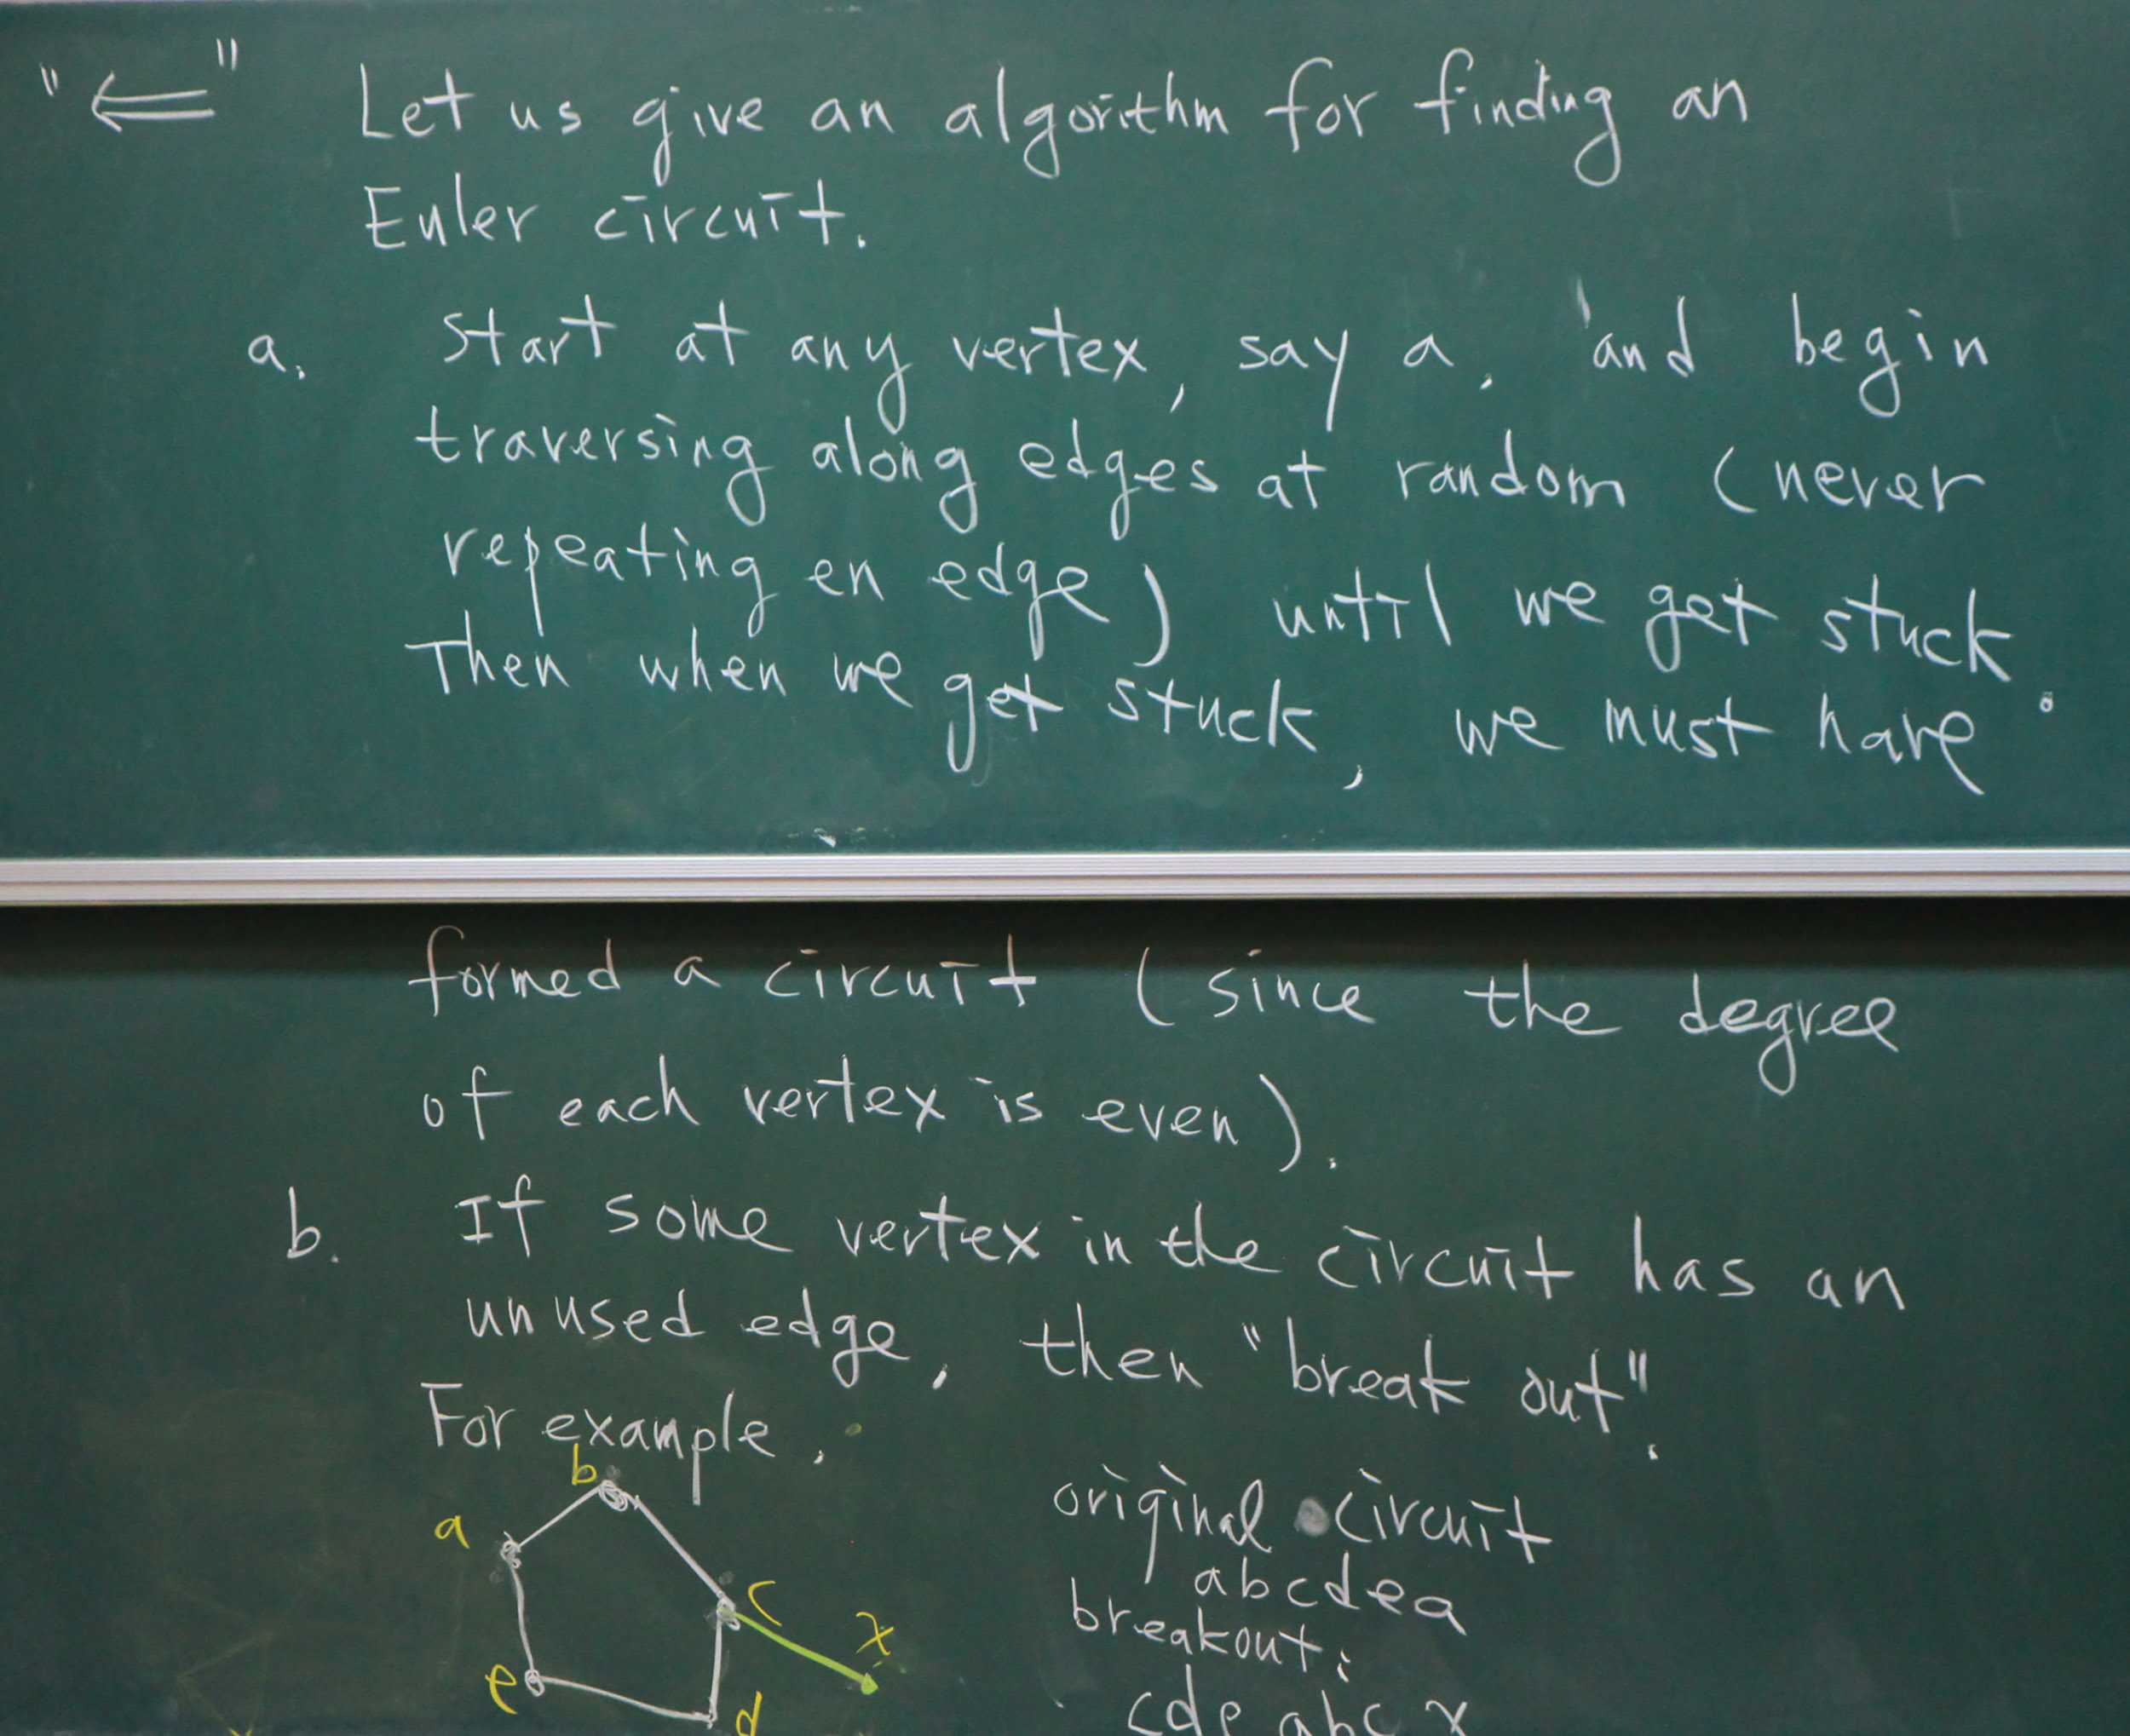 "⇐" Let us give an algorithm for finding an
Euler circuit.
a. Start at any vertex, say a, and begin
traversing along edges at random (never
repeating en edge) until we get stuck.
Then when we get stuck, we must have
formed a circuit (since the degree
of each vertex is even).
b. If some vertex in the circuit has an
unused edge, then "break out".
For example,
b
a
c
x
e
d
original circuit
abcdea
breakout:
cdeabcx